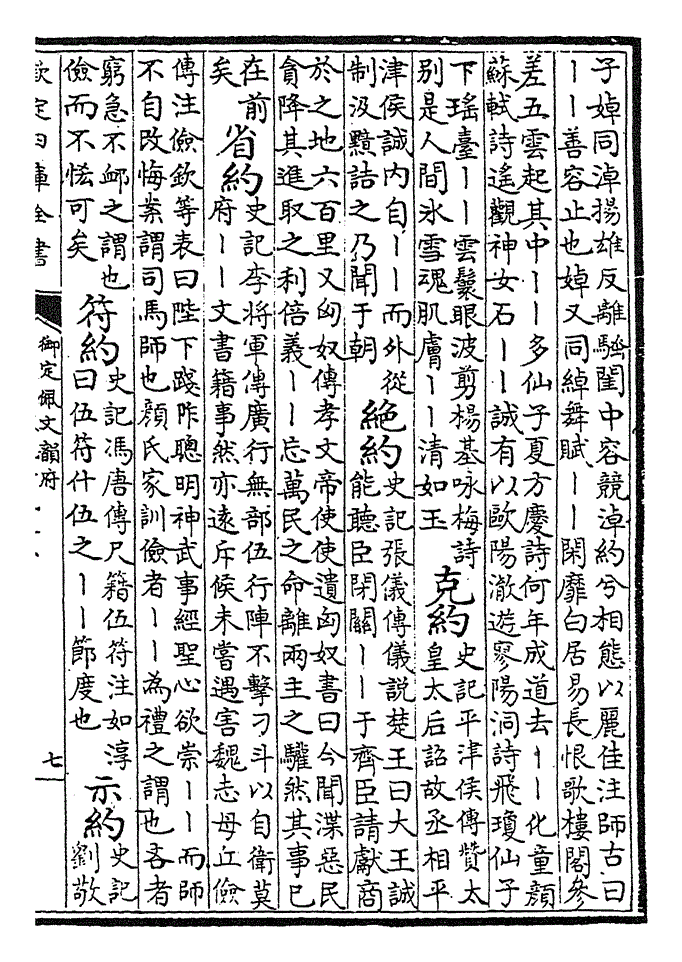 子婥同淖揚雄反離騷閨中容競淖約兮相態以麗佳注師古曰
丨丨善容止也婥又同綽舞賦丨丨閑靡白居易長恨歌樓閣參
差五雲起其中丨丨多仙子夏方慶詩何年成道去丨丨化童顔
蘇軾詩遙觀神女石丨丨誠有以歐陽澈遊寥陽洞詩飛瓊仙子
下瑤臺丨丨雲鬟眼波剪楊基咏梅詩
別是人間氷雪魂肌膚丨丨清如玉
克約
史記平津侯傳贊太
皇太后詔故丞相平
津侯誠内自丨丨而外從
制汲黯詰之乃聞于朝
絶約
史記張儀傳儀說楚王曰大王誠
能聽臣閉關丨丨于齊臣請獻商
於之地六百里又匈奴傳孝文帝使使遺匈奴書曰今聞渫惡民
貪降其進取之利倍義丨丨忘萬民之命離兩主之驩然其事已
在前
矣
省約
史記李將軍傳廣行無部伍行陣不擊刁斗以自衛莫
府丨丨文書籍事然亦遠斥候未嘗遇害魏志毋丘儉
傳注儉欽等表曰陛下踐阼聰明神武事經聖心欲崇丨丨而師
不自改悔案謂司馬師也顔氏家訓儉者丨丨為禮之謂也吝者
窮急不䘏之謂也
儉而不恡可矣
符約
史記馮唐傳尺籍伍符注如淳
曰伍符什伍之丨丨節度也
示約
史記
劉敬
欽定四庫全書
御定佩文韻府
七